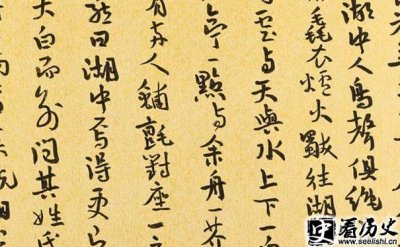 湖中人鳥聲俱絕
毳衣爐火獨往湖
雲与天與水上下一
亭一點与余舟芥
有兩人鋪氈對座一
曰湖中焉得更
大白而別問其姓氏
看历史
www.seelishi.cn